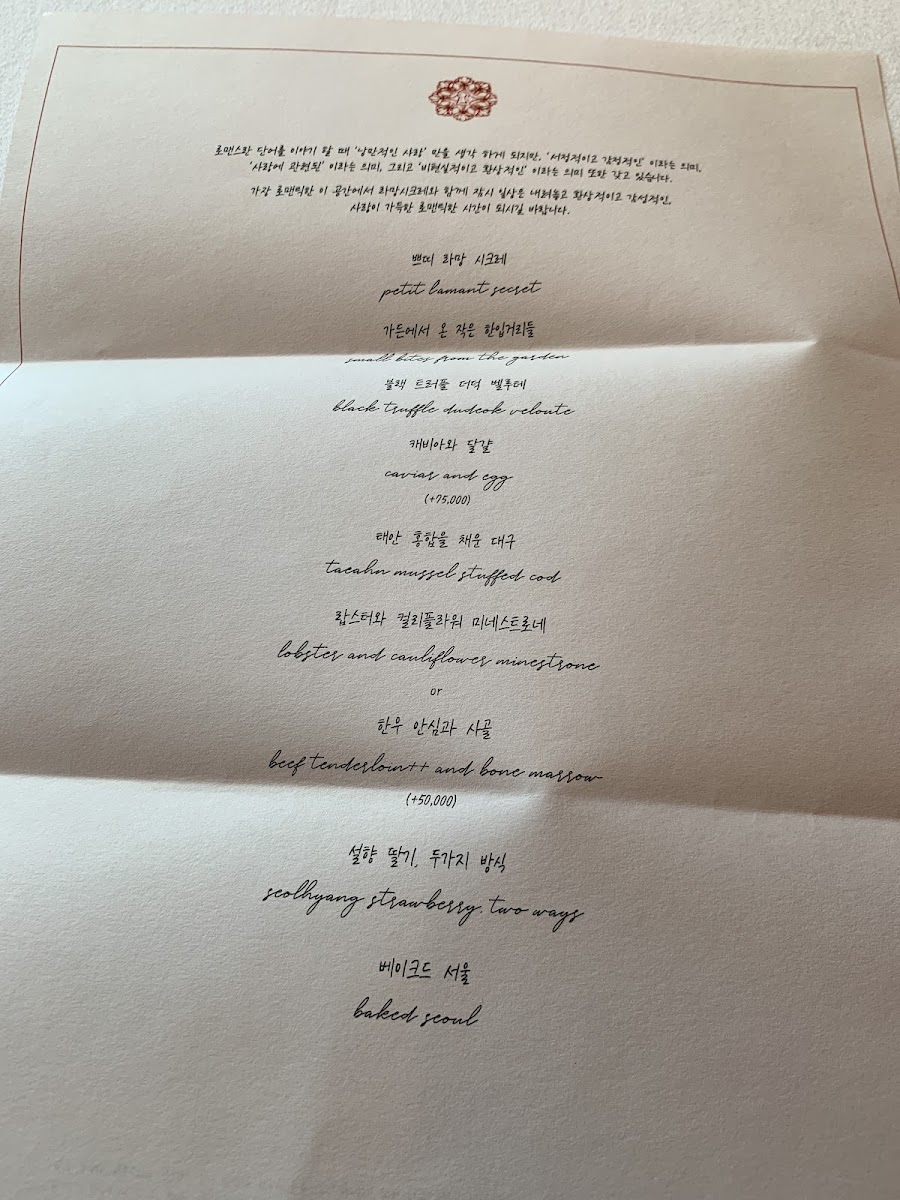 로맨스란 단어를 이야기 할 때 '낭만적인 사랑' 만을 생각 하게 되지만, '서정적이고 감정적인' 이라는 의미,
'사랑에 관련된' 이라는 의미, 그리고 '비현실적이고 환상적인' 이라는 의미 또한 갖고 있습니다.
가장 로맨틱한 이 공간에서 라망시크레와 함께 잠시 일상은 내려놓고 환상적이고 감성적인,
사랑이 가득한 로맨틱한 시간이 되시길 바랍니다.
쁘띠 라망 시크레
petit lamant secret
가든에서 온 작은 한입거리들
small bites from the garden
블랙 트러플 더덕 벨루테
black truffle dudeok veloute
캐비아와 달걀
caviar and egg
(+75,000)
태안 홍합을 채운 대구
taeahn mussel stuffed cod
랍스터와 컬리플라워 미네스트로네
lobster and cauliflower minestrone
or
한우 안심과 사골
beef tenderloin++ and bone marrow
(+50,000)
설향 딸기, 두가지 방식
seolhyang strawberry, two ways
베이크드 서울
baked seoul